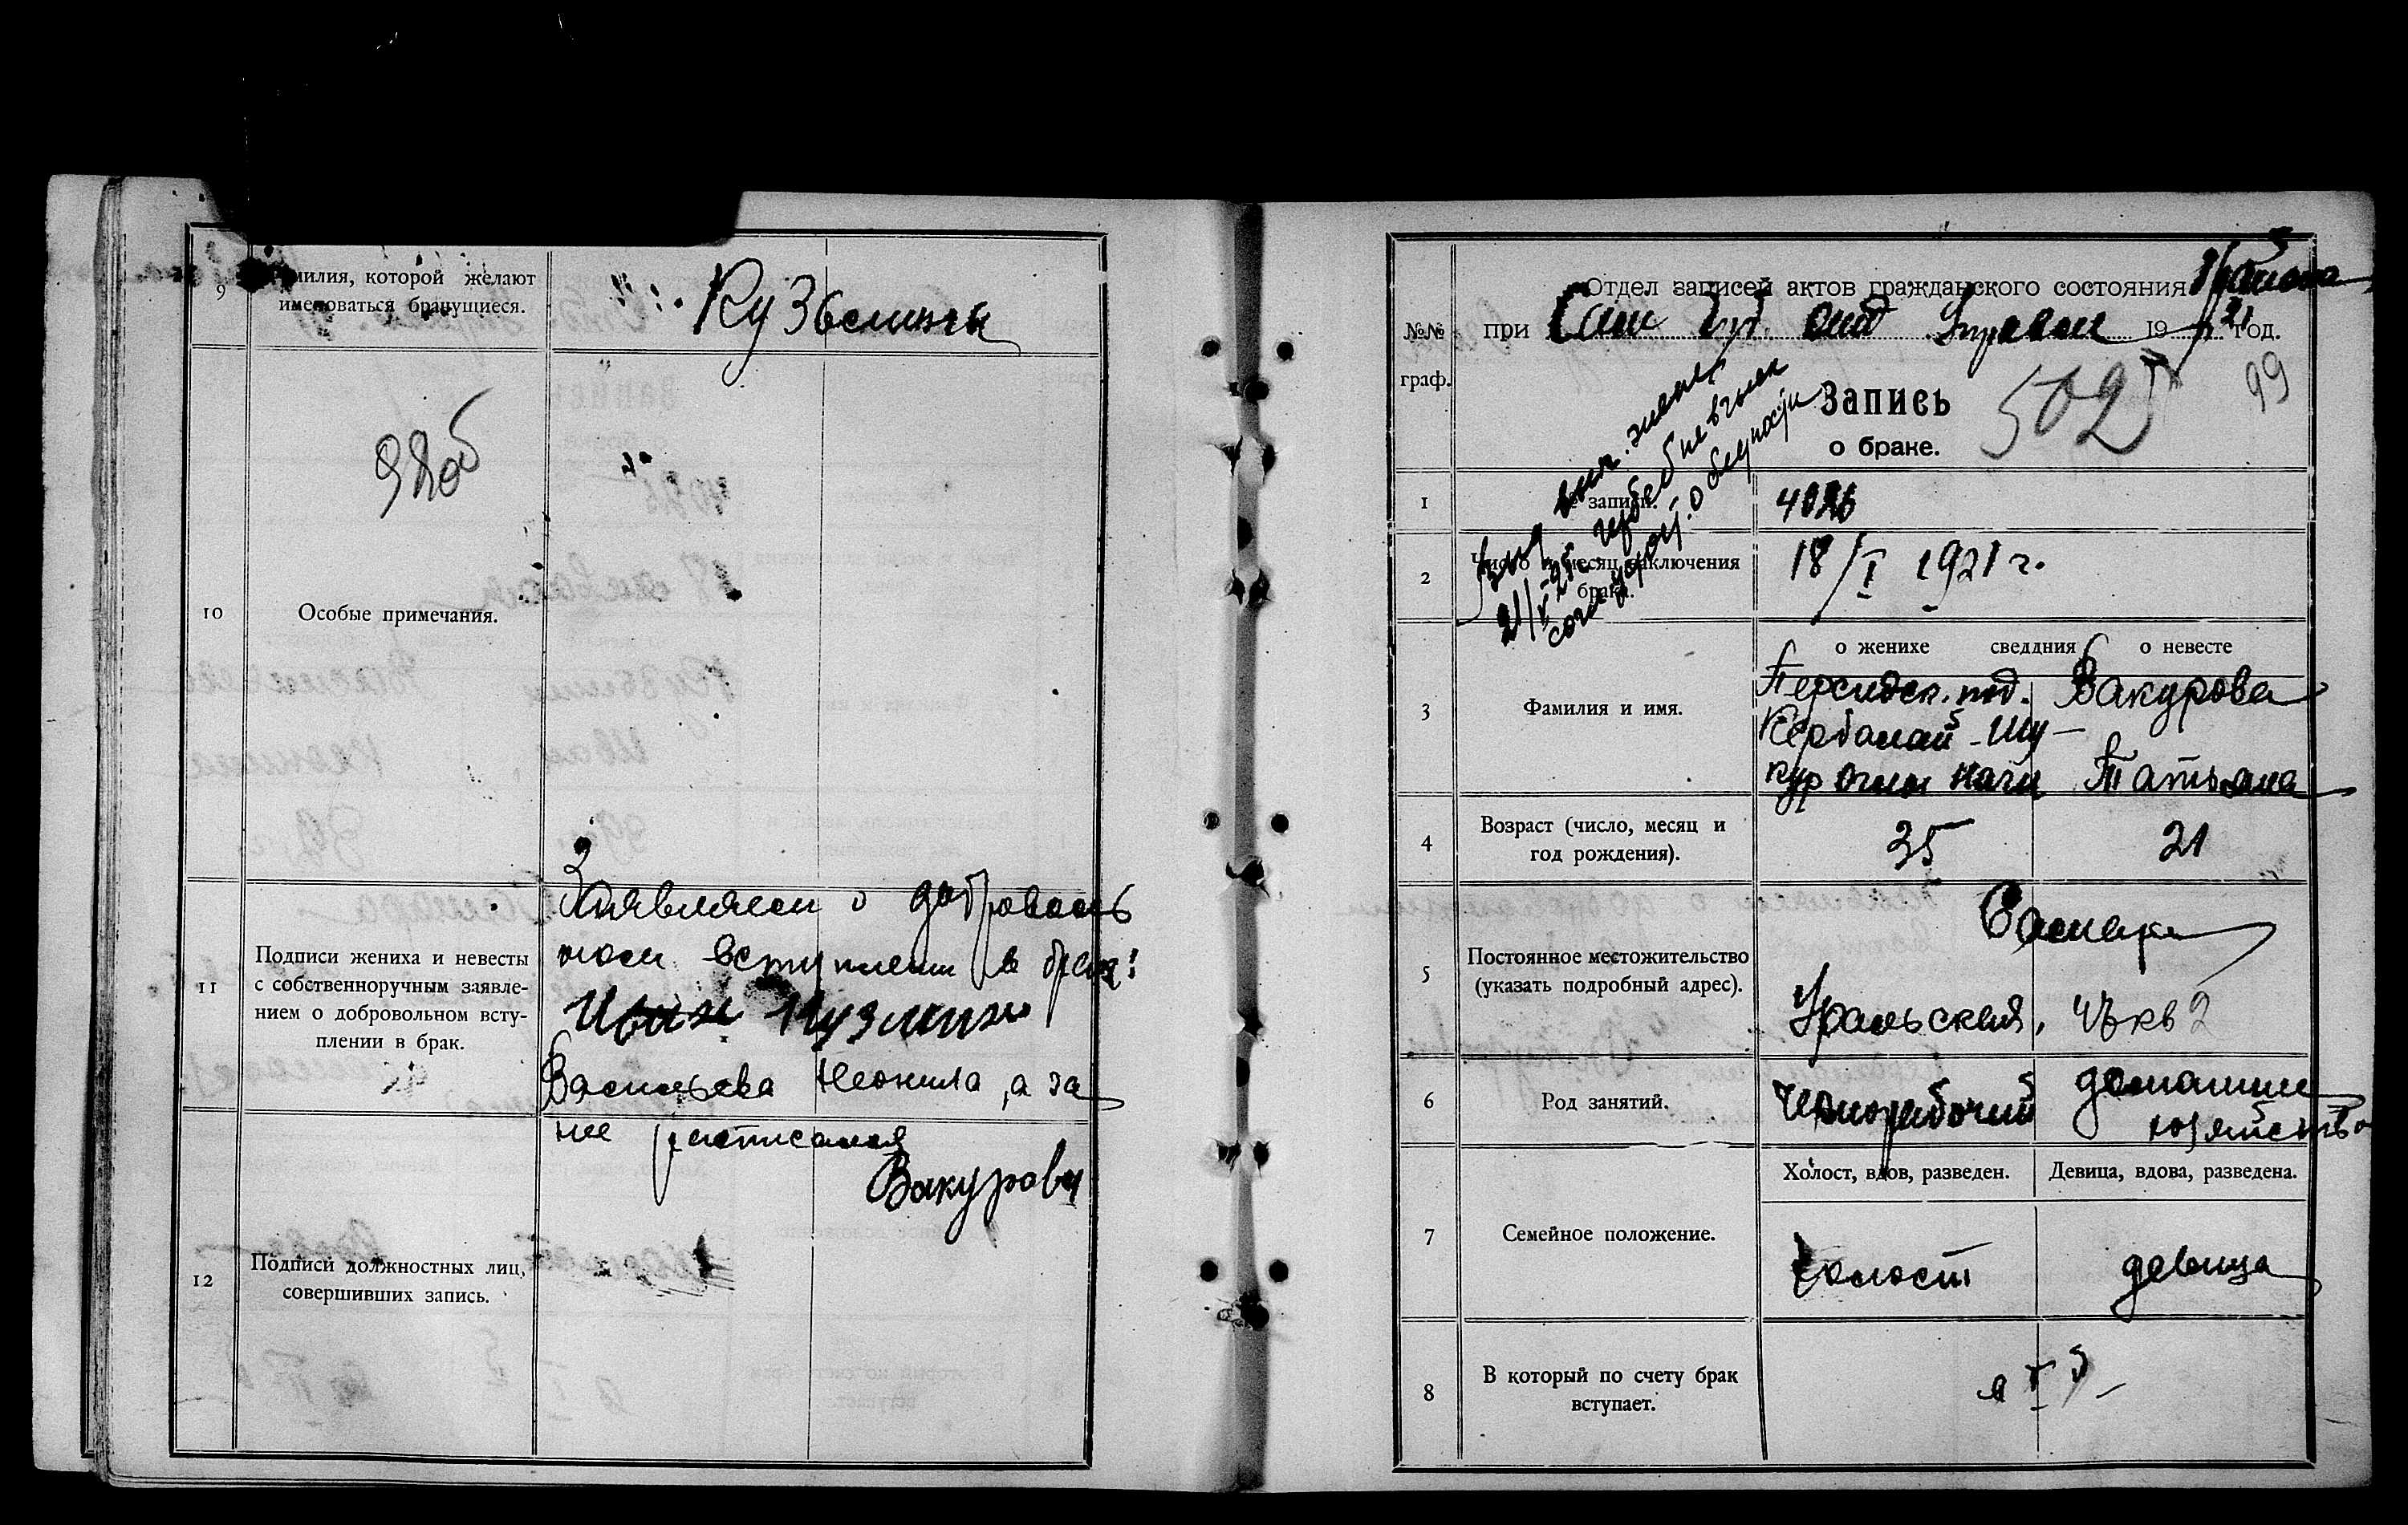 9
милия, которой желают
именоваться брачущиеся.
Кузьмины
98об
10
Особые примечания.
11
Подписи жениха и невесты
с собственноручным заявле-
нием о добровольном всту-
плении в брак.
Заявляем о доброволь
ном вступлении в брак:
Иван Кузмин
Васильева Неонила, а за
нее расписался
Вакурова
12
Подписи должностных лиц,
совершивших запись.
№№
граф.
Отдел записей актов гражданского состояния
района
при Сам Губ отд Управлен 1921 год.
99
Запись
502
о браке.
1
№ записи.
402б
2
Число и месяц заключения
брака.
18/I 1921 г.
о женихе сведдния о невесте
3
Фамилия и имя.
Персидск. под. Вакурова
Кербалай-Шу-
кур Татьяна
4
Возраст (число, месяц и
год рождения).
35 21
5
Постоянное местожительство
(указать подробный адрес).
Самара
Уральская, кв 2
6
Род занятий.
Чернорабочий домашнее
хозяйство
Холост, вдов, разведен. Девица, вдова, разведена.
7
Семейное положение.
холост девица
8
В который по счету брак
вступает.
в I й